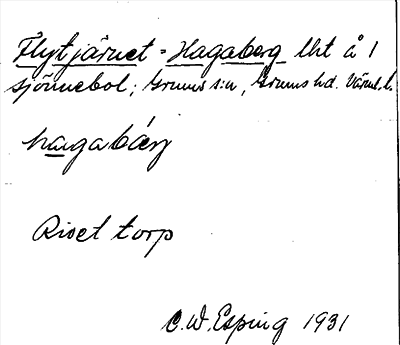 Flytjärnet = Hagaberg lht å 1
sjönnebol; Grums s:n, Grums hd. Värml. l.
hagabárj
Riset torp
C.W. Esping 1931